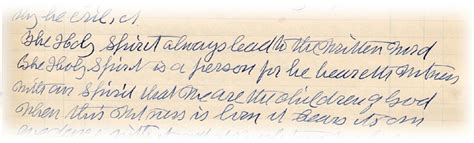 The Holy Spirit always lead to the written word
The Holy Spirit is a person for he beareth witness
with our Spirit that we are the children of God
when this witness is born it bears its own